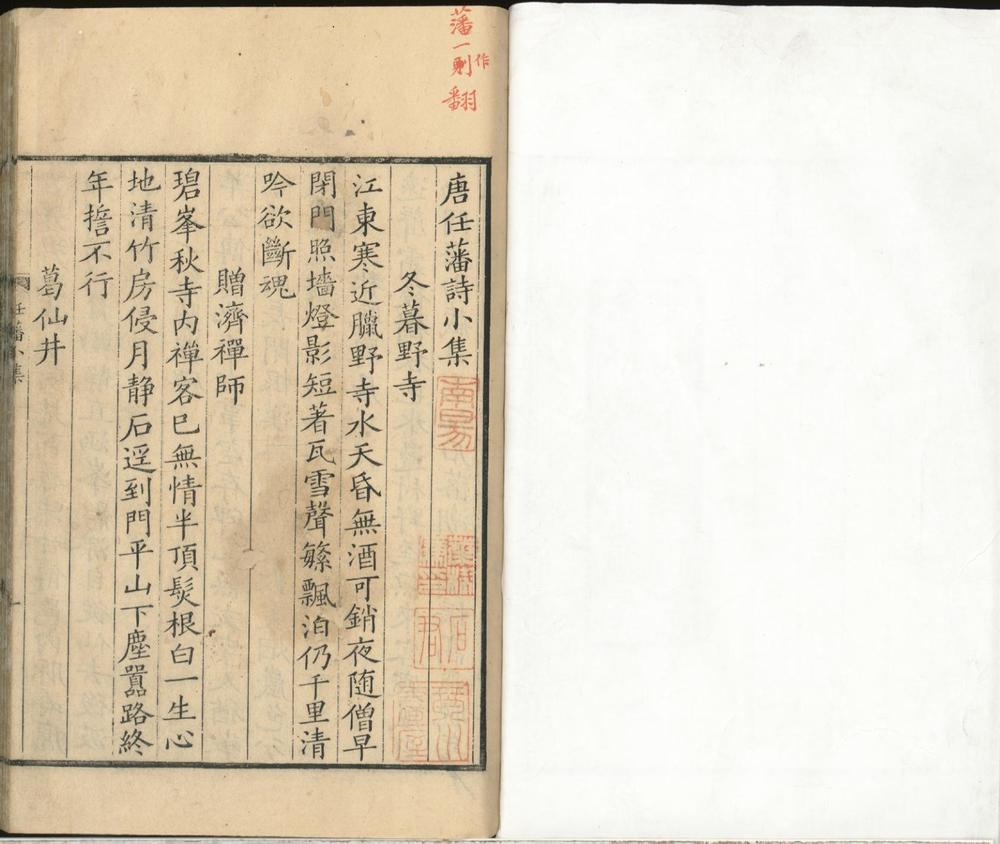 藩一作翻
唐任藩詩小集
冬暮野寺
江東寒近臘野寺水天昏無酒可銷夜随僧早
閉門照墻燈影短著瓦雪聲繁飄泊仍千里清
吟欲斷魂
贈濟禪師
碧峯秋寺内禪客已無情半頂髮根白一生心
地清竹房侵月静石逕到門平山下塵囂路終
年誓不行
葛仙井
任藩小集
一